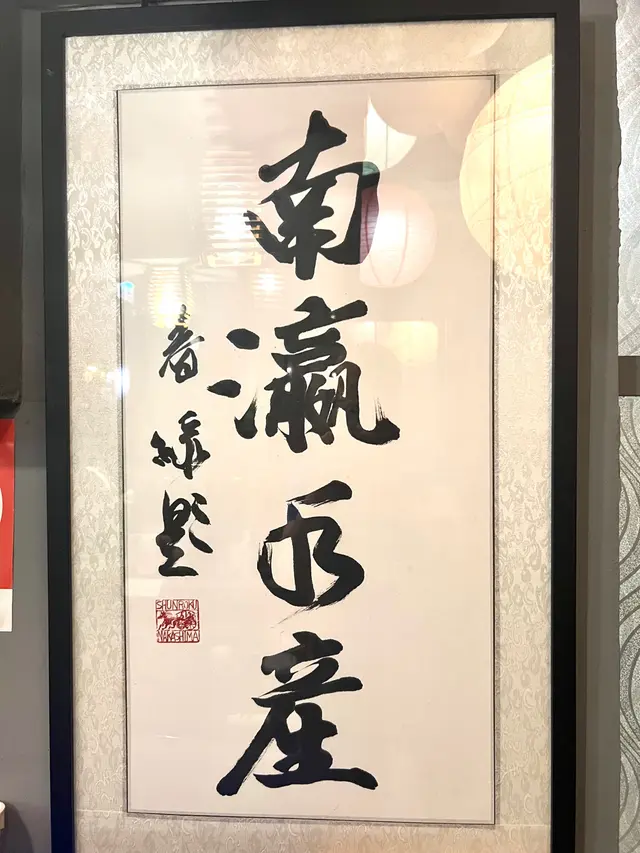 南瀛水産
春緑題
SHUNROKU
NAKASHIMA